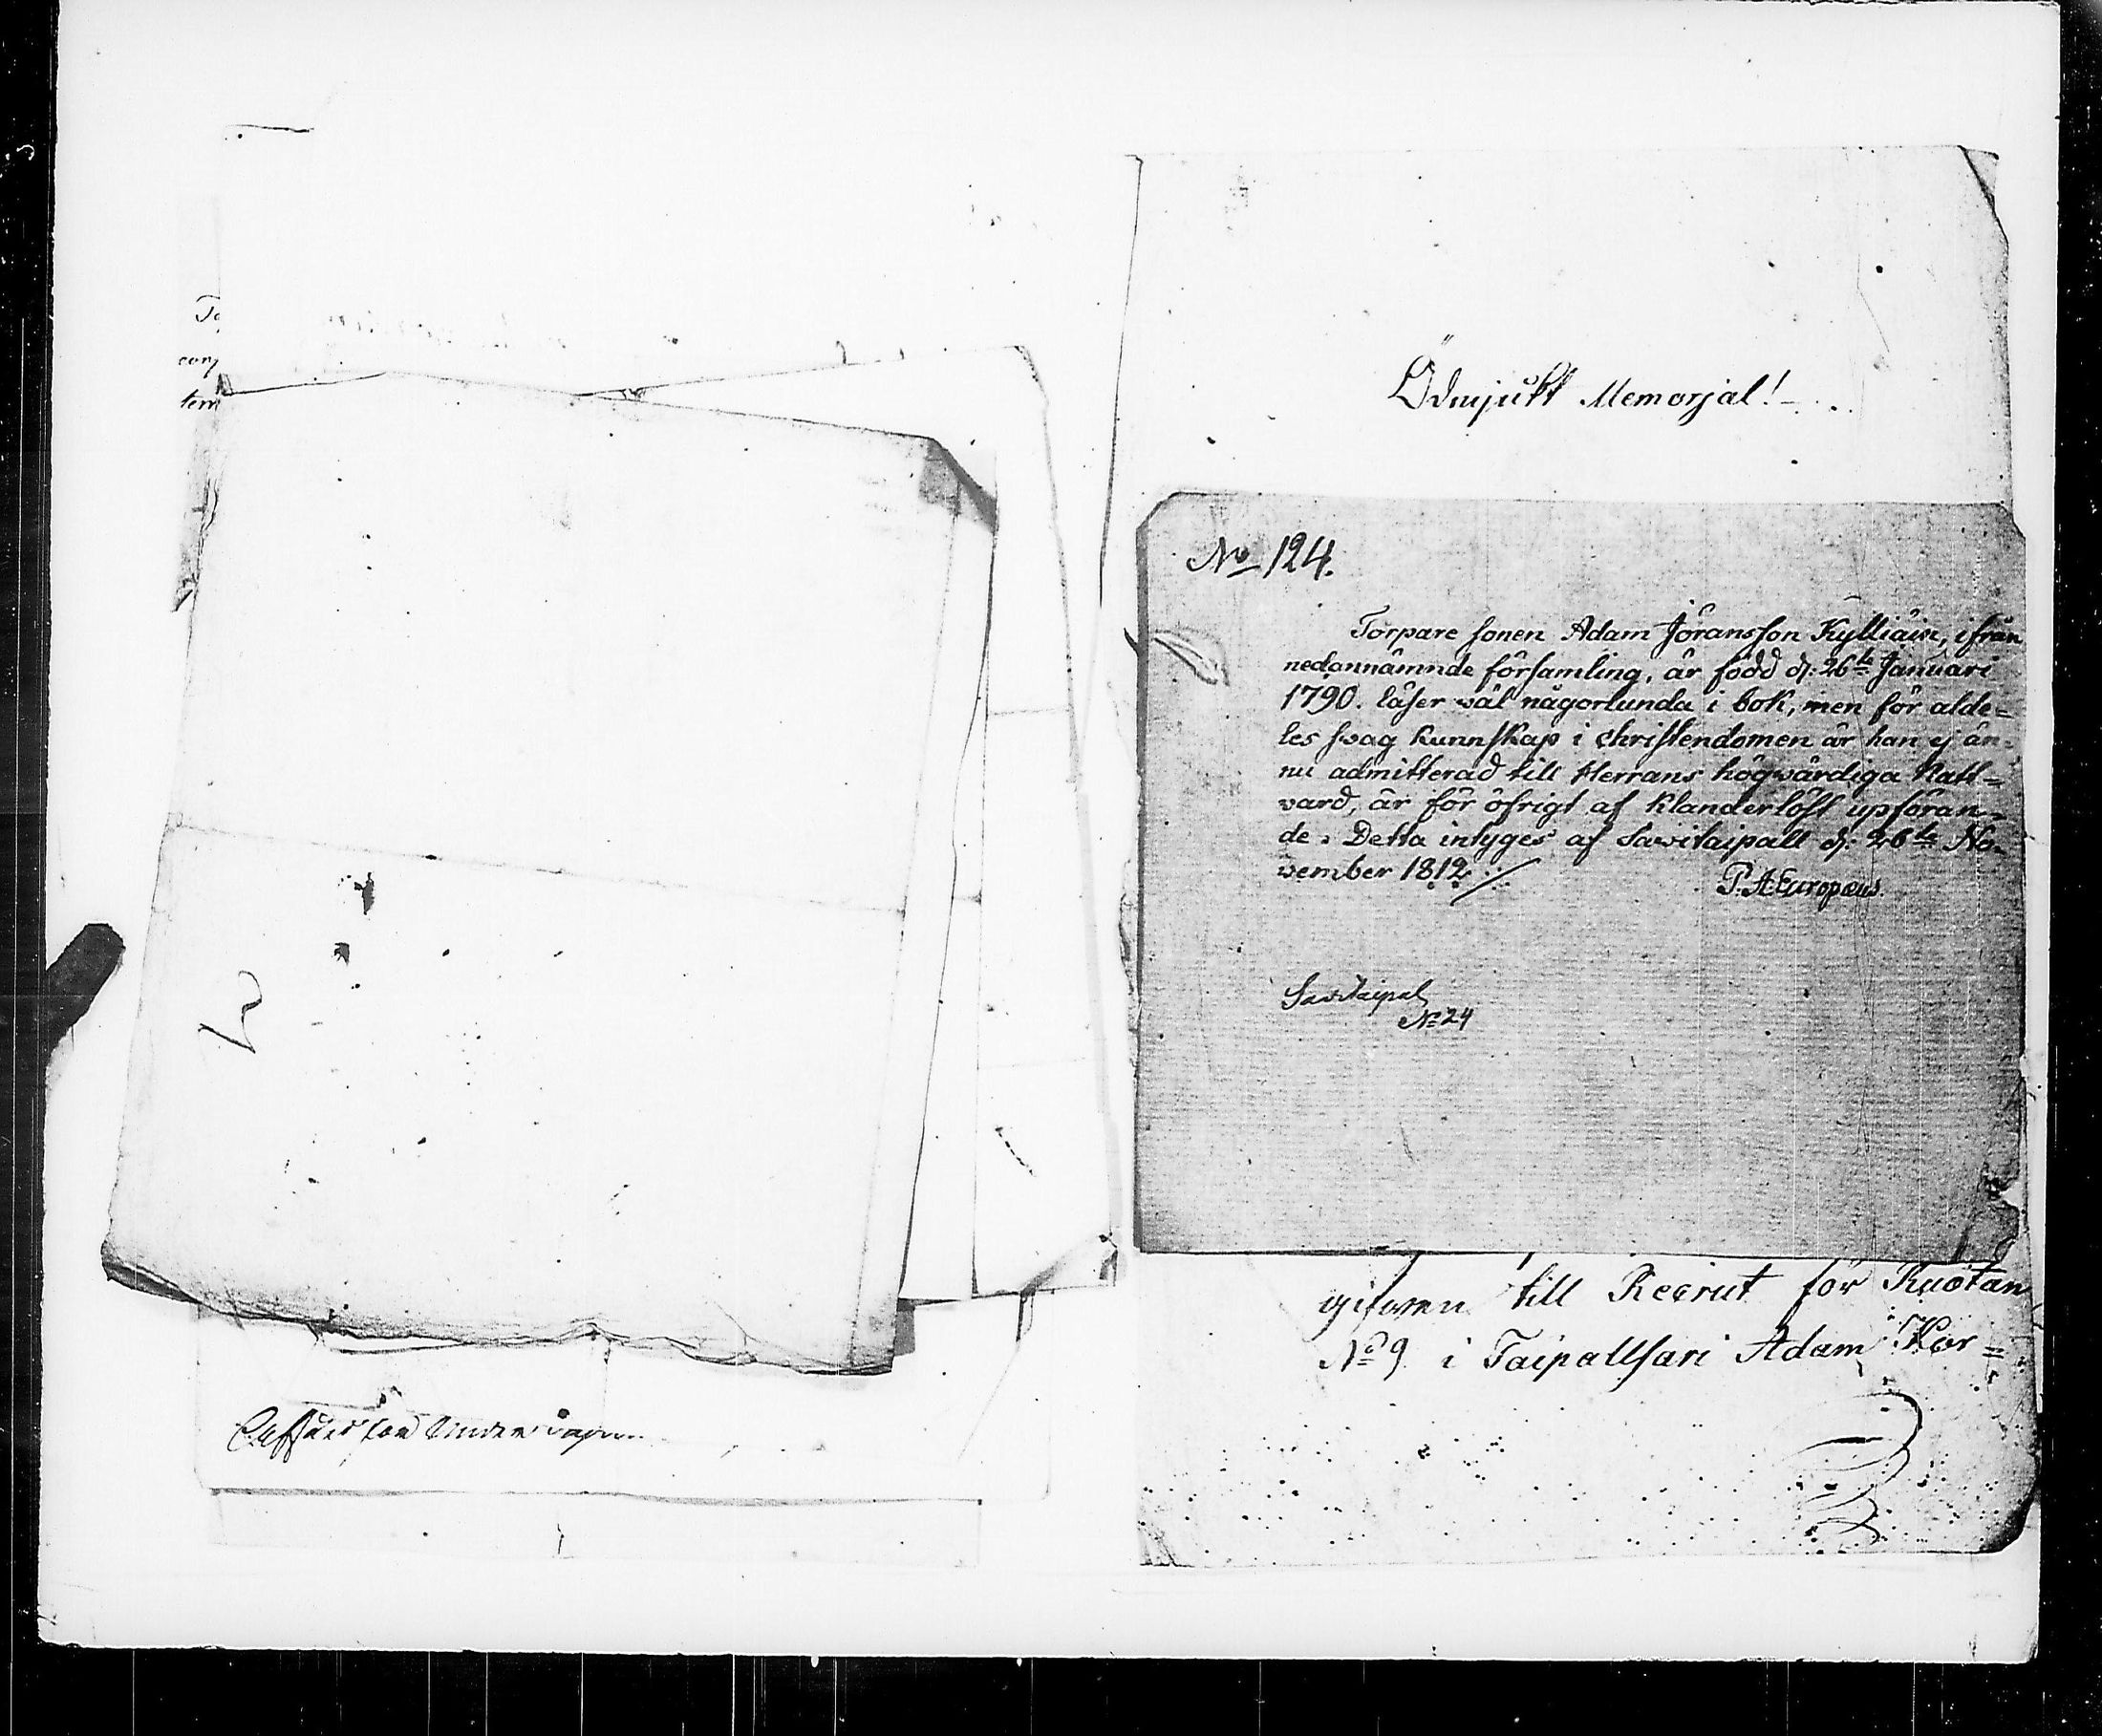 To
com
tem
Ödmjukt Memorjal!
No 124.
Torpare sonen Adam Jöransson Kylliäin, ifrån
nedannämnde församling, är född d: 26te Januari
1790. läser wäl någorlunda i bok, men för alde=
les swag kunnskap i christendomen är han ej än=
nu admitterad till Herrans högwärdiga Natt=
vard, är för öfrigt af klanderlöst upföran=
de. Detta intyges af Sawitaipall d: 26te No=
vember 1812
P. A. Europæus.
Sawitaipal
No 24
gifwen till Recrut för Kuotan
No 9 i Taipallsari Adam Kor=